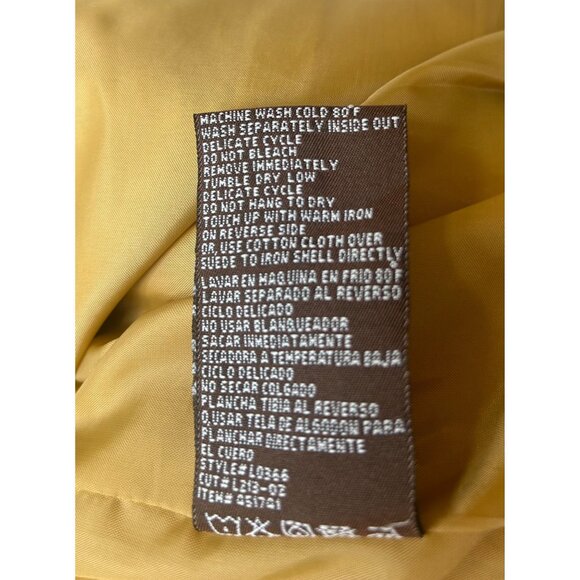 MACHINE WASH COLD 80°F
WASH SEPARATELY INSIDE OUT
DELICATE CYCLE
DO NOT BLEACH
REMOVE IMMEDIATELY
TUMBLE DRY LOW
DELICATE CYCLE
DO NOT HANG TO DRY
TOUCH UP WITH WARM IRON
ON REVERSE SIDE
OR, USE COTTON CLOTH OVER
SUEDE TO IRON SHELL DIRECTLY
LAVAR EN MAQUINA EN FRIO 80°F
LAVAR SEPARADO AL REVERSO
CICLO DELICADO
NO USAR BLANQUEADOR
SACAR INMEDIATAMENTE
SECADORA A TEMPERATURA BAJA
CICLO DELICADO
NO SECAR COLGADO
PLANCHA TIBIA AL REVERSO
O, USAR TELA DE ALGODON PARA
PLANCHAR DIRECTAMENTE
EL CUERO
STYLE# L0366
CUT# L213-02
ITEM# Q51741